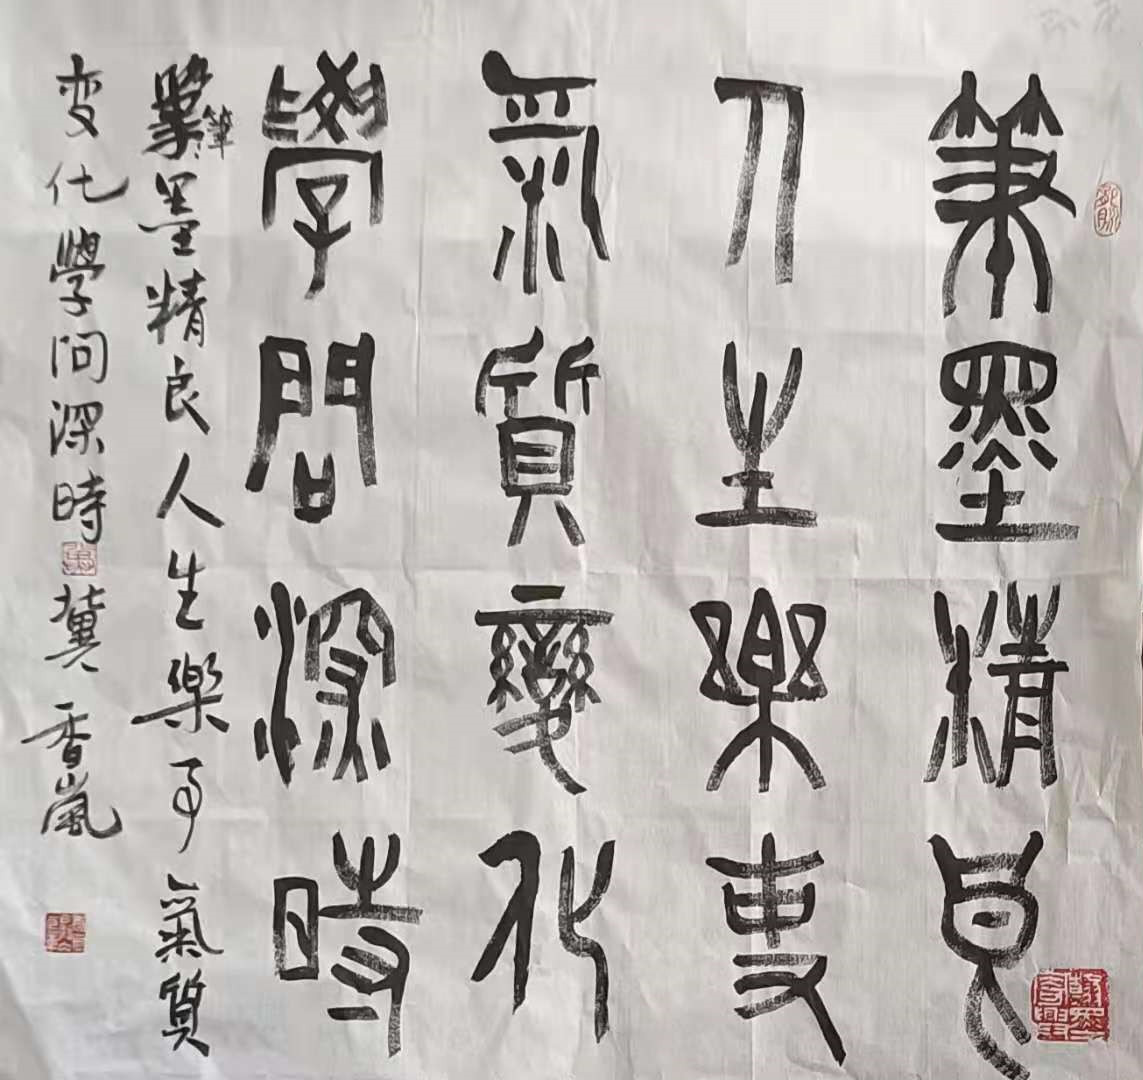 筆墨精良
人生樂事
氣質變化
學問深時
筆墨精良人生樂事氣質
变化學问深時 冀香嵐